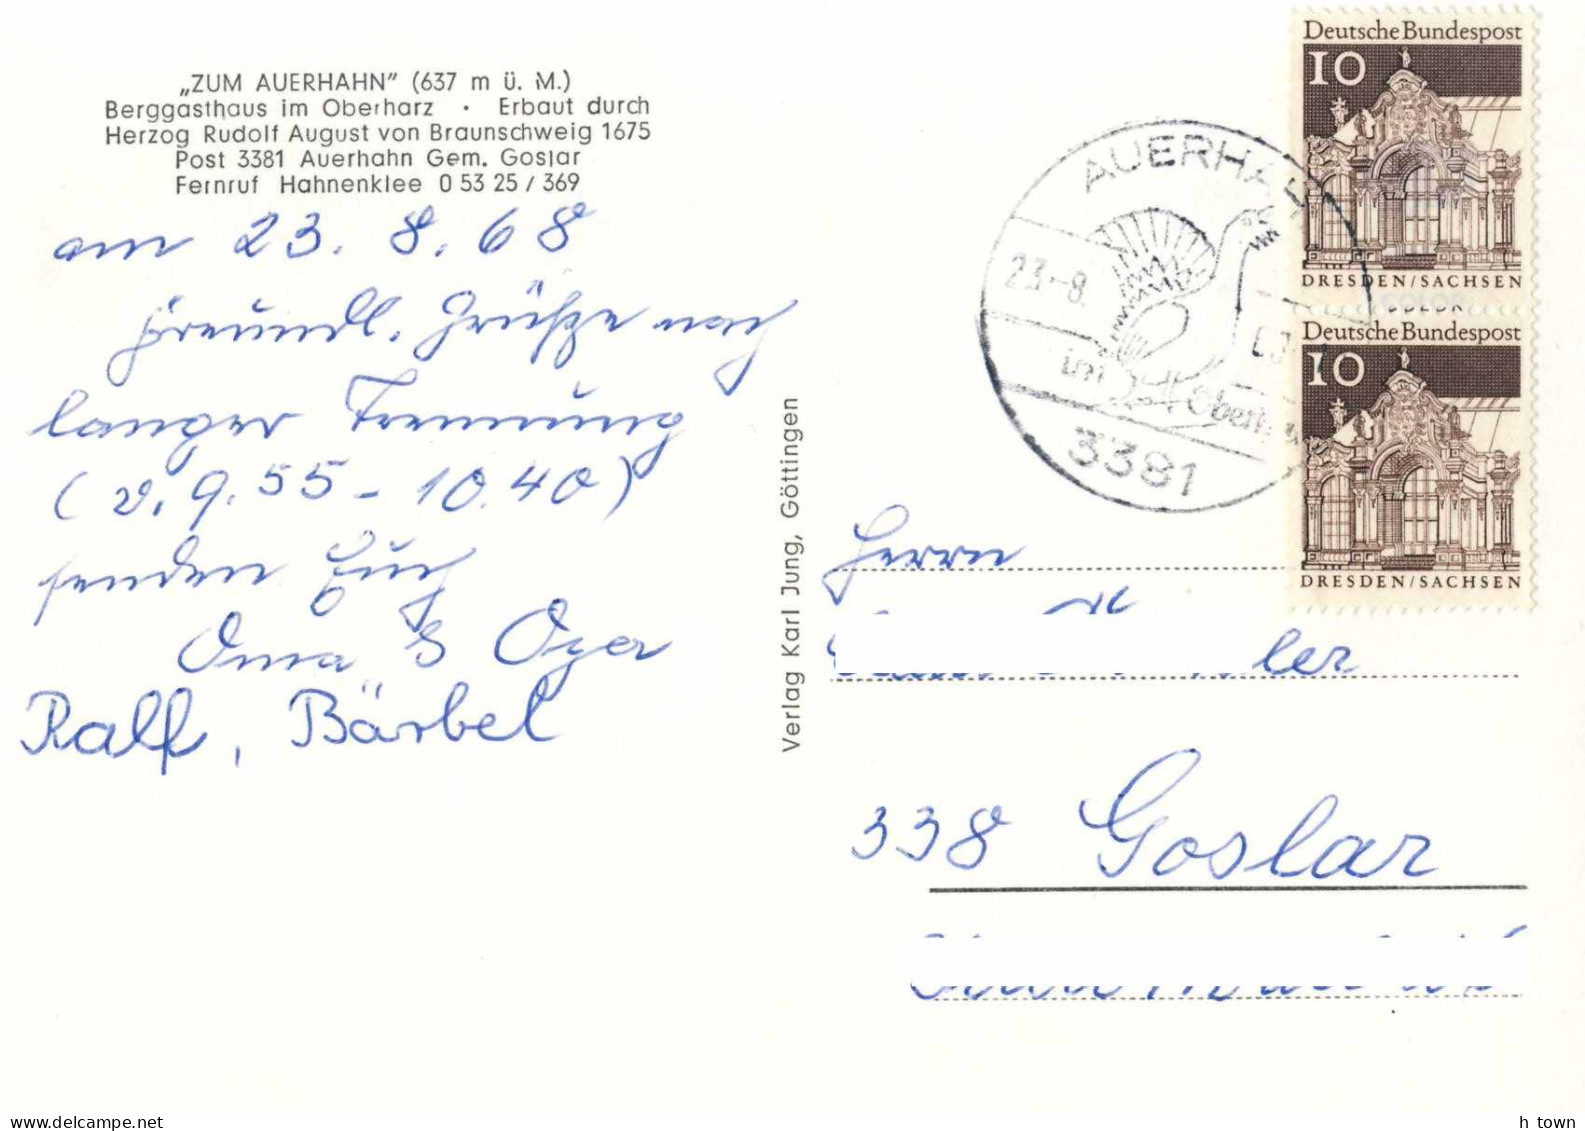 „ZUM AUERHAHN" (637 m ü. M.)
Berggasthaus im Oberharz · Erbaut durch
Herzog Rudolf August von Braunschweig 1675
Post 3381 Auerhahn Gem. Goslar
Fernruf Hahnenklee 0 53 25 / 369
am 23. 8. 68
Freundl. Grüße nach
langer Trennung
(v. 9.55 - 10.40)
senden Euch
Oma & Opa
Ralf, Bärbel
Verlag Karl Jung, Göttingen
AUERHAH
23.-8.
im Oberh
3381
Deutsche Bundespost
10
DRESDEN/SACHSEN
COLOR
Deutsche Bundespost
10
DRESDEN/SACHSEN
Herrn
ler
338 Goslar
delcampe.net
h_town